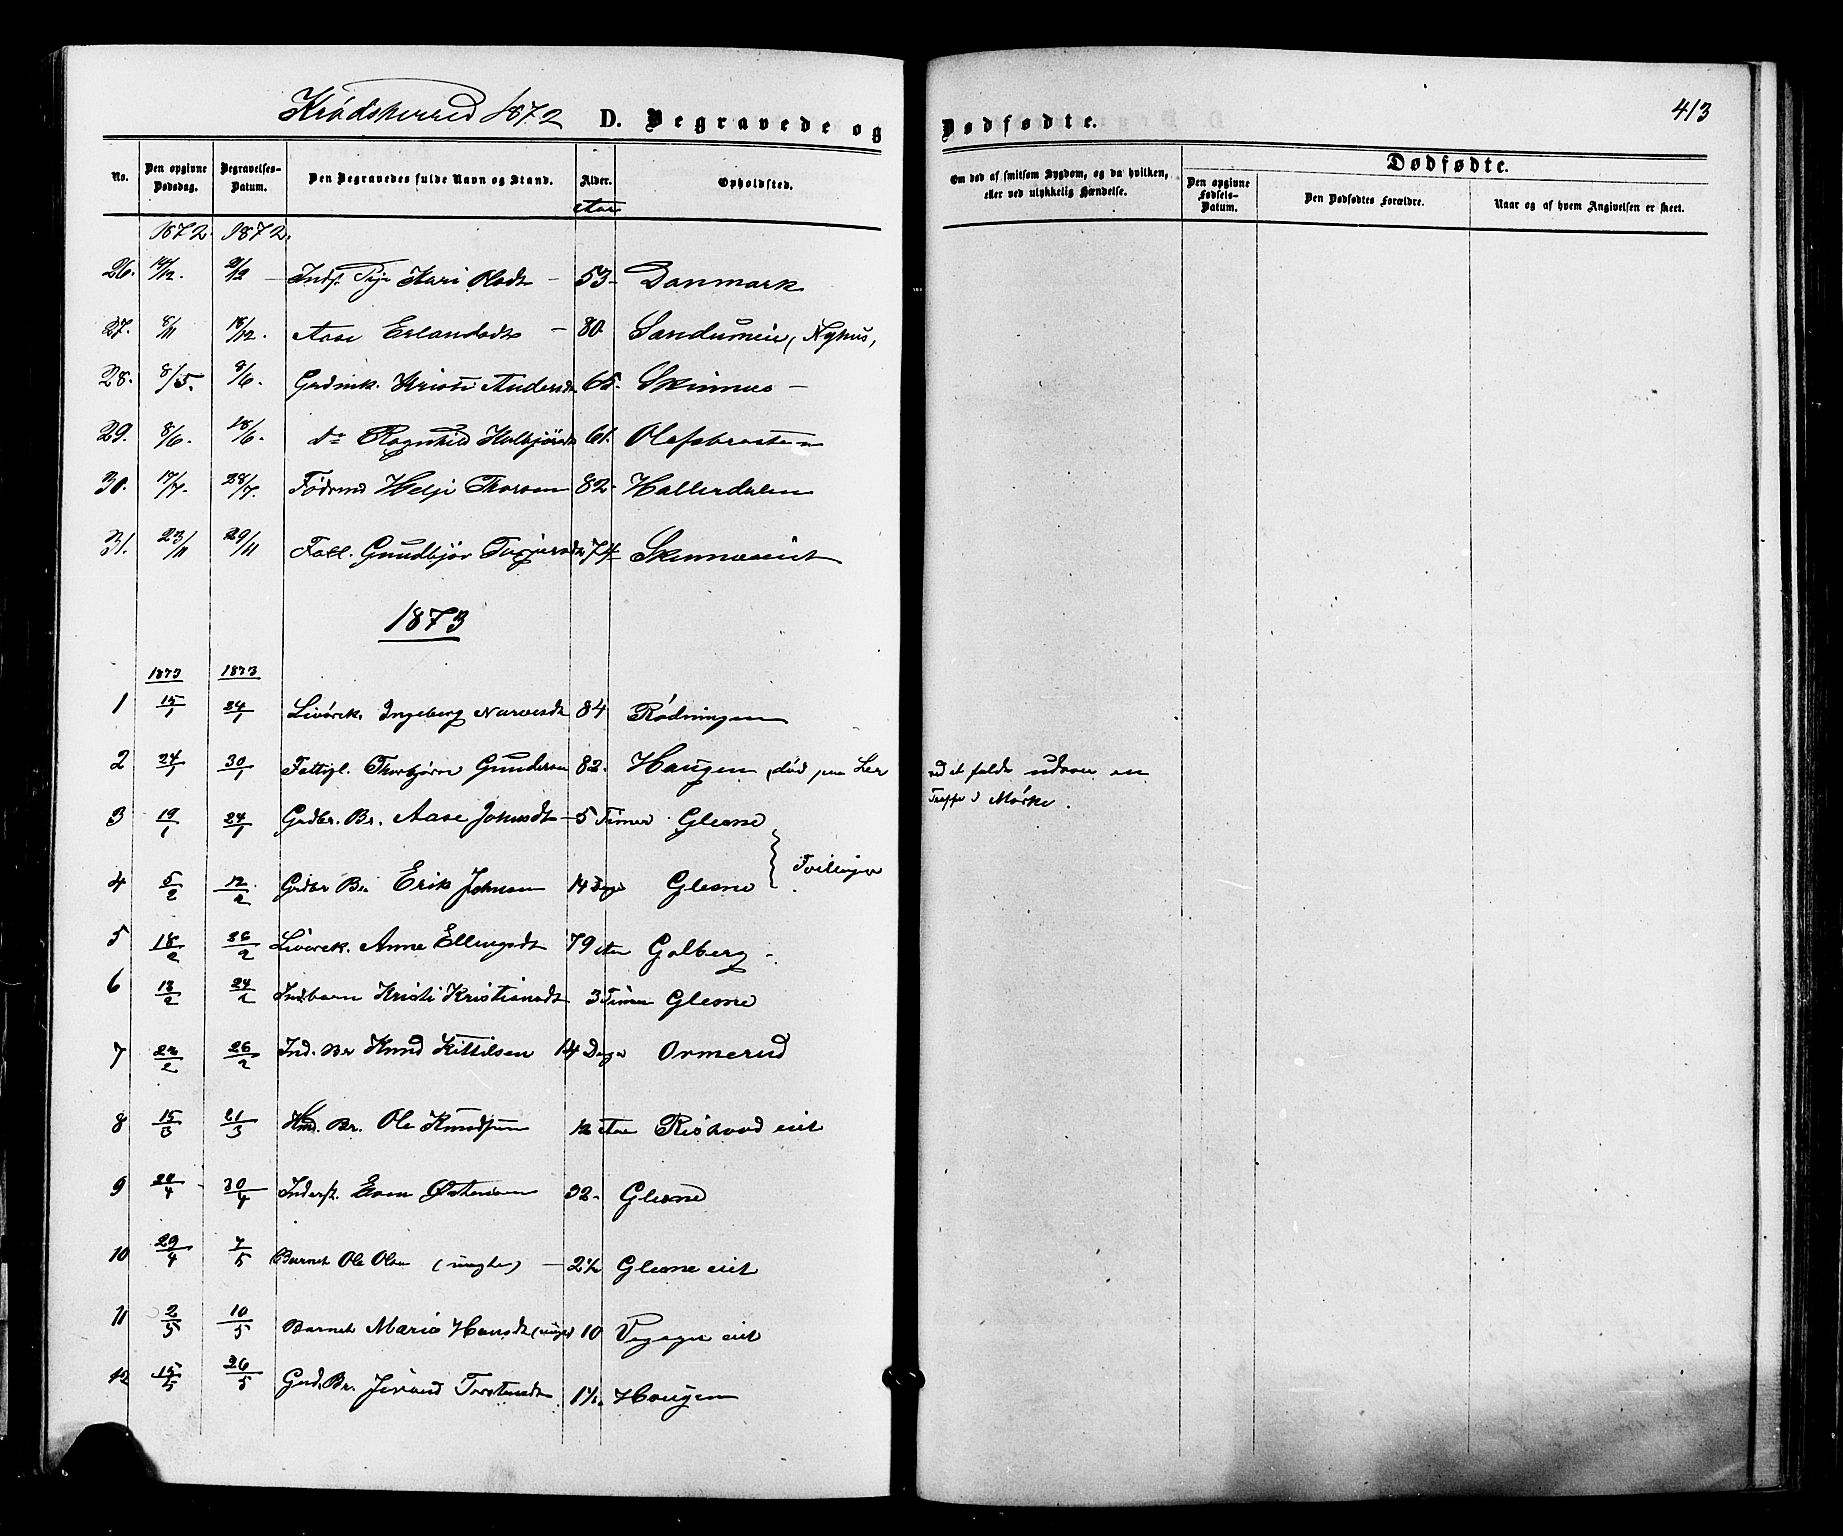 Krødsherred 1872 D. Begravede og Dødfødte. 413
No. Den opgivne Dødsdag. Begravelses-Datum. Den Begravedes fulde Navn og Stand. Alder. Opholdsted. Om død af smitsom Sygdom, og da hvilken, eller ved ulykkelig Hændelse. Dødfødte.
Den opgivne Fødsels-Datum. Den Dødfødtes Forældre. Naar og af hvem Angivelsen er skeet.
Aar
1872. 1872.
26. Kari Olsdt - 53 - Danmark
27. 8/11 18/12. Aase Erlandsdt - 80. Sandumeie, Nyhus,
28. 8/5. 9/6. Grdmk. Andersdt 65. Skinnes -
29. 8/6. 18/6. do Ragnhild 61. Olafsbraaten
30. 17/7. 28/7. Helje Thorsen 82 - Hallerdalen
31. 23/11 29/11 Gundbjør 74 Skinneseiet
1873
1873 1873
1 15/1 24/1 Livørek. Ingeborg Narvesdt 84 Rødningen
2 24/1 30/1 Fattigl. Thorbjørn Gundersen 82. Haugen, død ved et fald udover en
Trappe i Mørke.
3 19/1 24/1 Grdbr. Br. Aase Johnsdt - 5 Timer Glesne
4 5/2 12/2 Grdbr Br Erik Johnsen 14 Dage Glesne } Tvillinger
5 18/2 26/2 Livørek. Anne Ellingsdt 79 Aar Golberg -
6 13/2 24/2 Indbarn Kristi Kristiansdt 3 Timer Glesne
7 26/2 Ind. Br Knud Kittilsen 14 Dage Ormerud
8 15/3 21/3 Hmd. Br. Ole Knudsen 12 Aar eiet
9 30/4 Inderst. Even Østensen 32 - Glesne
10 29/4 7/5 Barnet Ole Olsen (uægte) - 2½ Glesne eiet
11 2/5 10/5 Barnet Maria Hansdt (uægte) 10 eiet
12 15/5 26/5 Grd. Br. Torstensdt Haugen